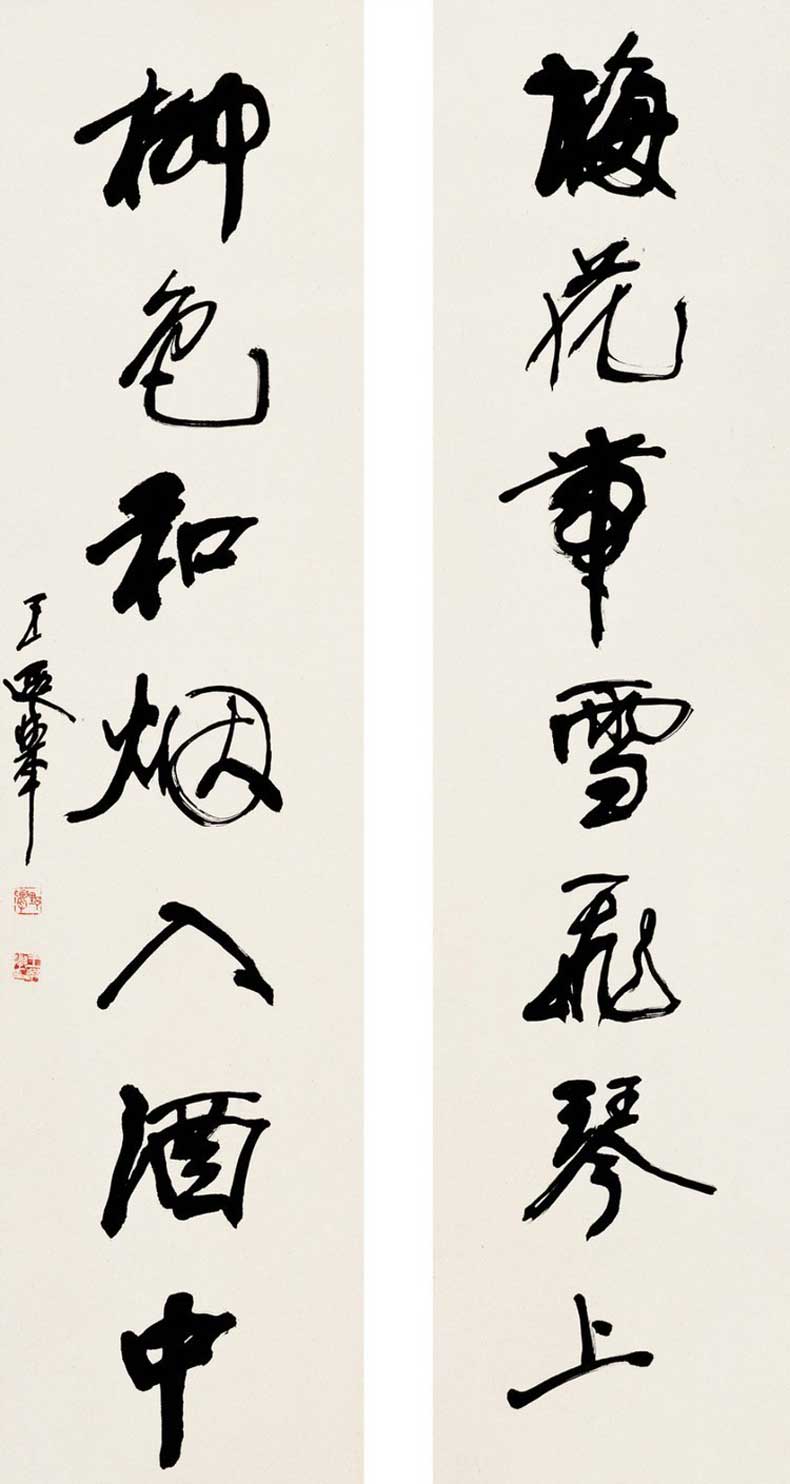 梅花带雪飞琴上
柳色和烟入酒中
王遐举